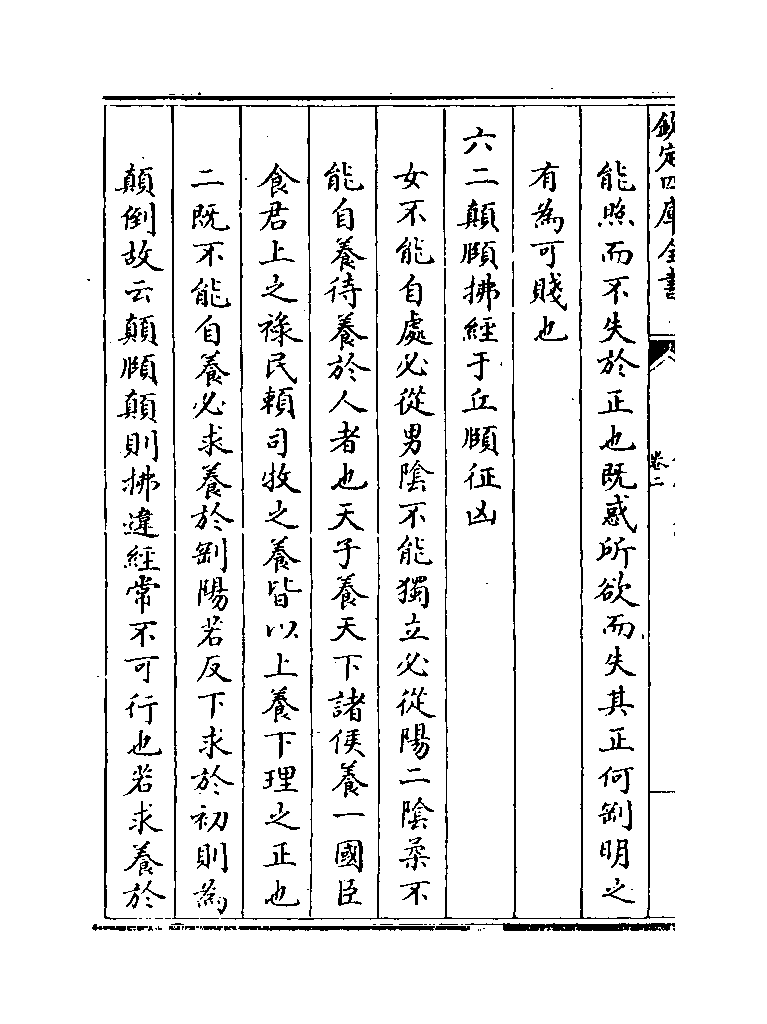 欽定四庫全書
卷二
能照而不失於正也既惑所欲而失其正何剛明之
有為可賤也
六二顛頤拂經于丘頤征凶
女不能自處必從男陰不能獨立必從陽二陰柔不
能自養待養於人者也天子養天下諸侯養一國臣
食君上之祿民賴司牧之養皆以上養下理之正也
二既不能自養必求養於剛陽若反下求於初則為
顛倒故云顛頤顛則拂違經常不可行也若求養於